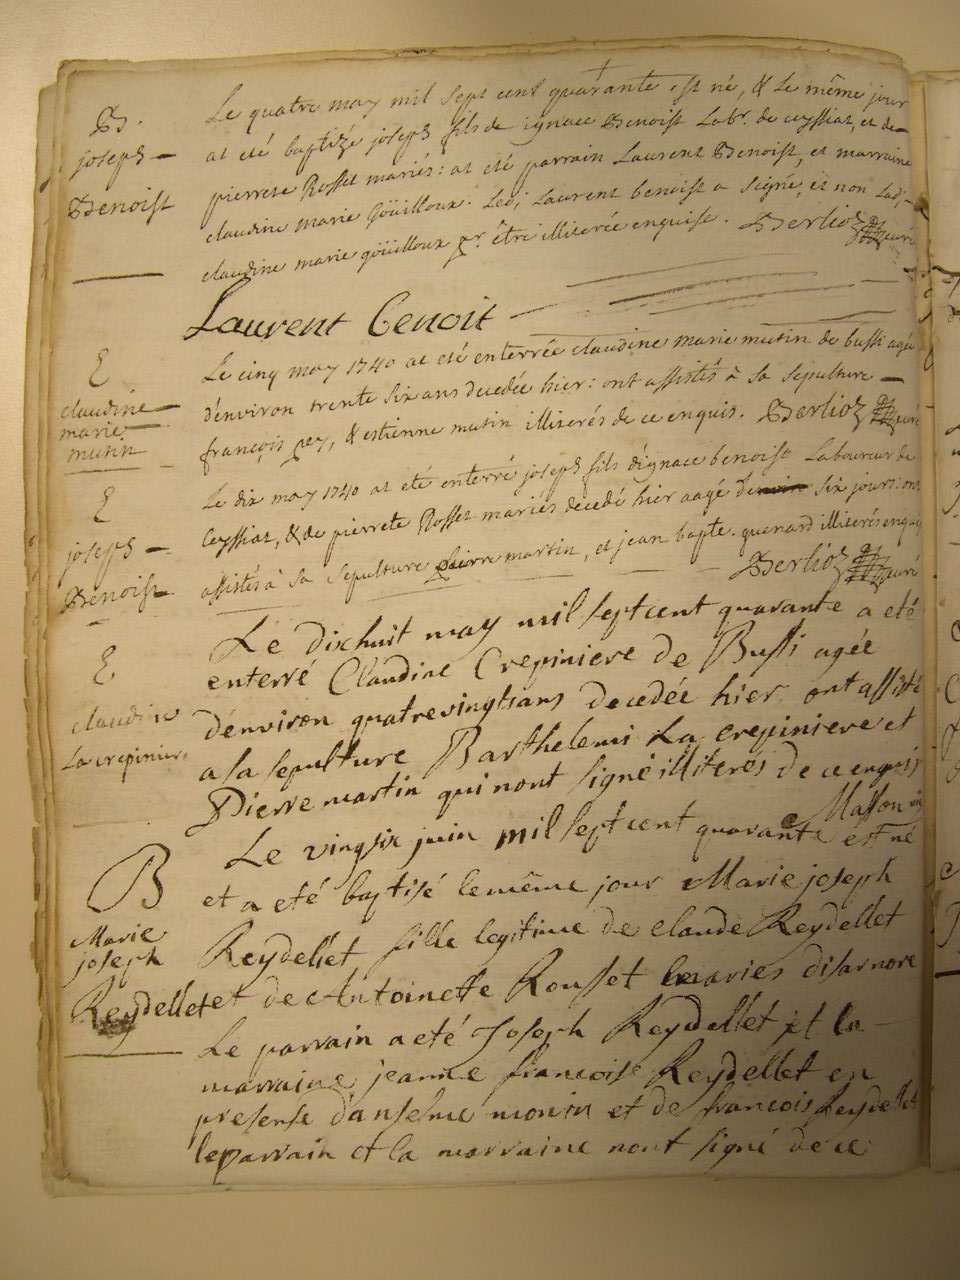 B.
joseph
Benoist
Le quatre may mil sept cent quarante est né, & le même jour
at eté baptizé joseph fils de ignace Benoist Labr. de ceyssiat, et de
pierrete Rosset mariés: at eté parrain Laurent Benoist, et marraine
claudine marie Goüilloux. Ledi Laurent benoist a signé, et non Ladi
claudine marie goüilloux pr. être illiterée enquise. Berlioz curé
Laurent Benoit
E
claudine
marie
mutin
Le cinq may 1740 at eté enterrée claudine marie mutin de bussi agée
d'environ trente six ans decedée hier: ont assistés à sa sepulture
françois pey, & estienne mutin illiterés de ce enquis. Berlioz curé
E
joseph
Benoist
Le dix may 1740 at eté enterré joseph fils d'ignace benoist Laboureur de
Ceyssiat, & de pierrete Rosset mariés decedé hier aagé de six jours: ont
assistés à sa sepulture pierre martin, et jean bapte. quenard illiterés enquis
Berlioz curé
E
claudine
La crepiniere
Le dixhuit may mil sept cent quarante a eté
enterré Claudine Crepiniere de Bussi agée
d'environ quatrevingts ans decedée hier ont assisté
a sa sepulture Barthelemi La crepiniere et
Pierre martin qui n'ont signé illiterés de ce enquis
Masson
B
Marie
joseph
Reydellet
Le vingsix juin mil sept cent quarante est né
et a eté baptisé le même jour Marie joseph
Reydellet fille legitime de claude Reydellet
et de Antoinette Rousset maries disarnore
Le parrain a eté Joseph Reydellet et la
marraine jeanne francoise Reydellet en
presense d'anselme monin et de francois Reydellet
le parrain et la marraine n'ont signé de ce